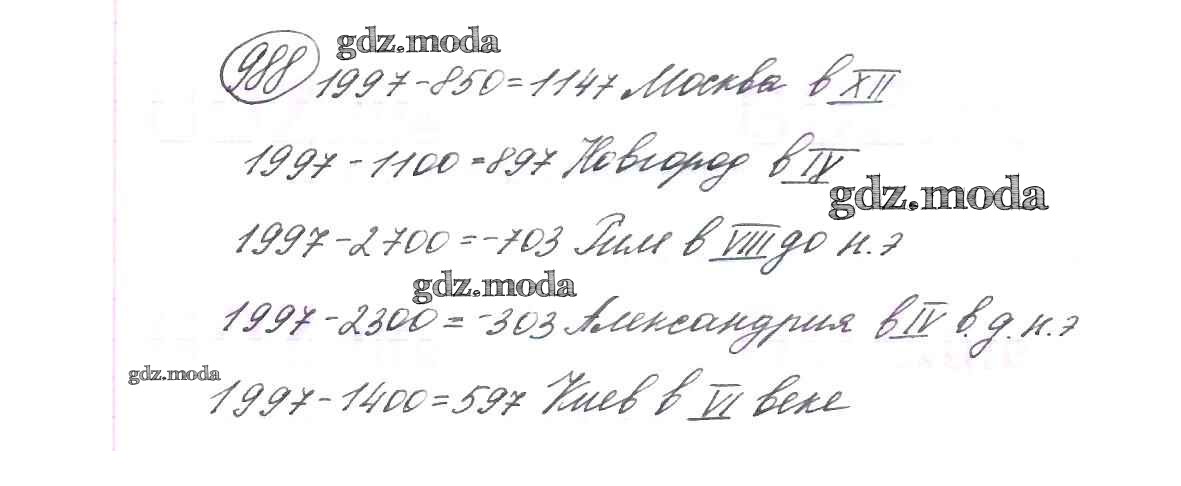 gdz.moda
988 1997-850=1147 Москва в XII
1997-1100=897 Новгород в IV
gdz.moda
1997-2700=-703 Рим в VIII до н.э
gdz.moda
1997-2300=-303 Александрия в IV в.д.н.э
gdz.moda
1997-1400=597 Киев в VI веке